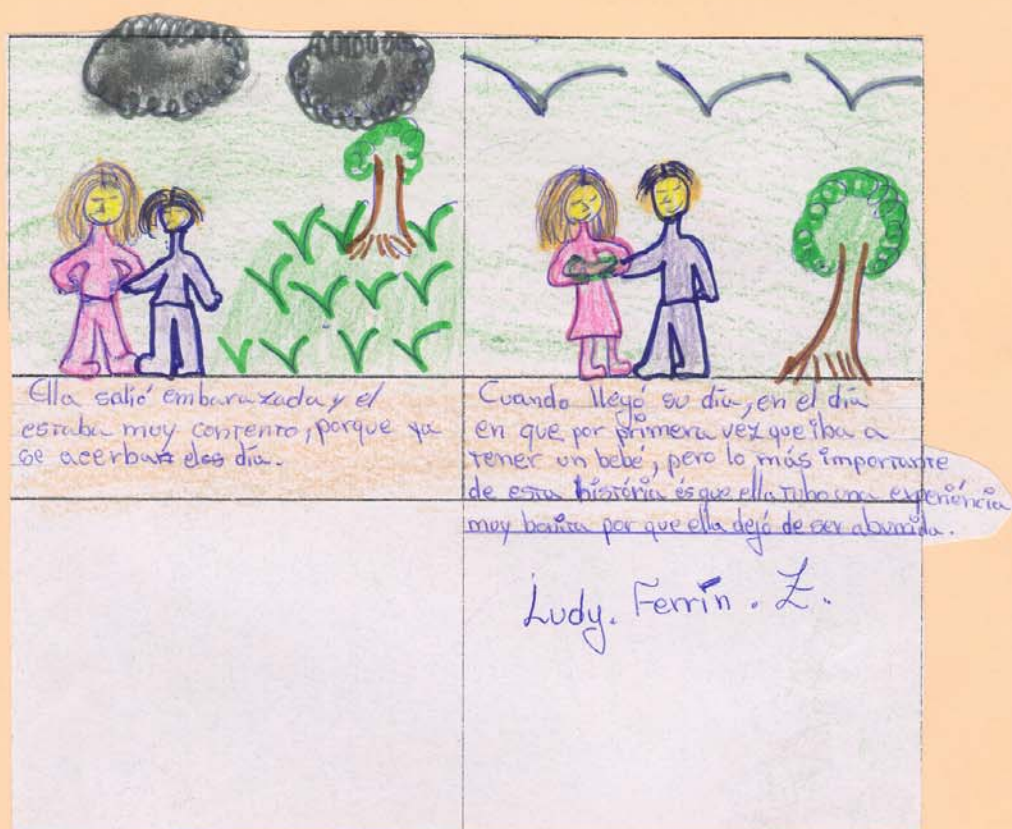 Ella salió embarazada y el
estaba muy contento, porque ya
se acerbar el es día.
Cuando llegó su día, en el día
en que por primera vez que iba a
tener un bebé, pero lo más importante
de esta história és que ella tubo una experiéncia
muy bonita por que ella dejó de ser aburrida.
Ludy. Ferrín. Z.